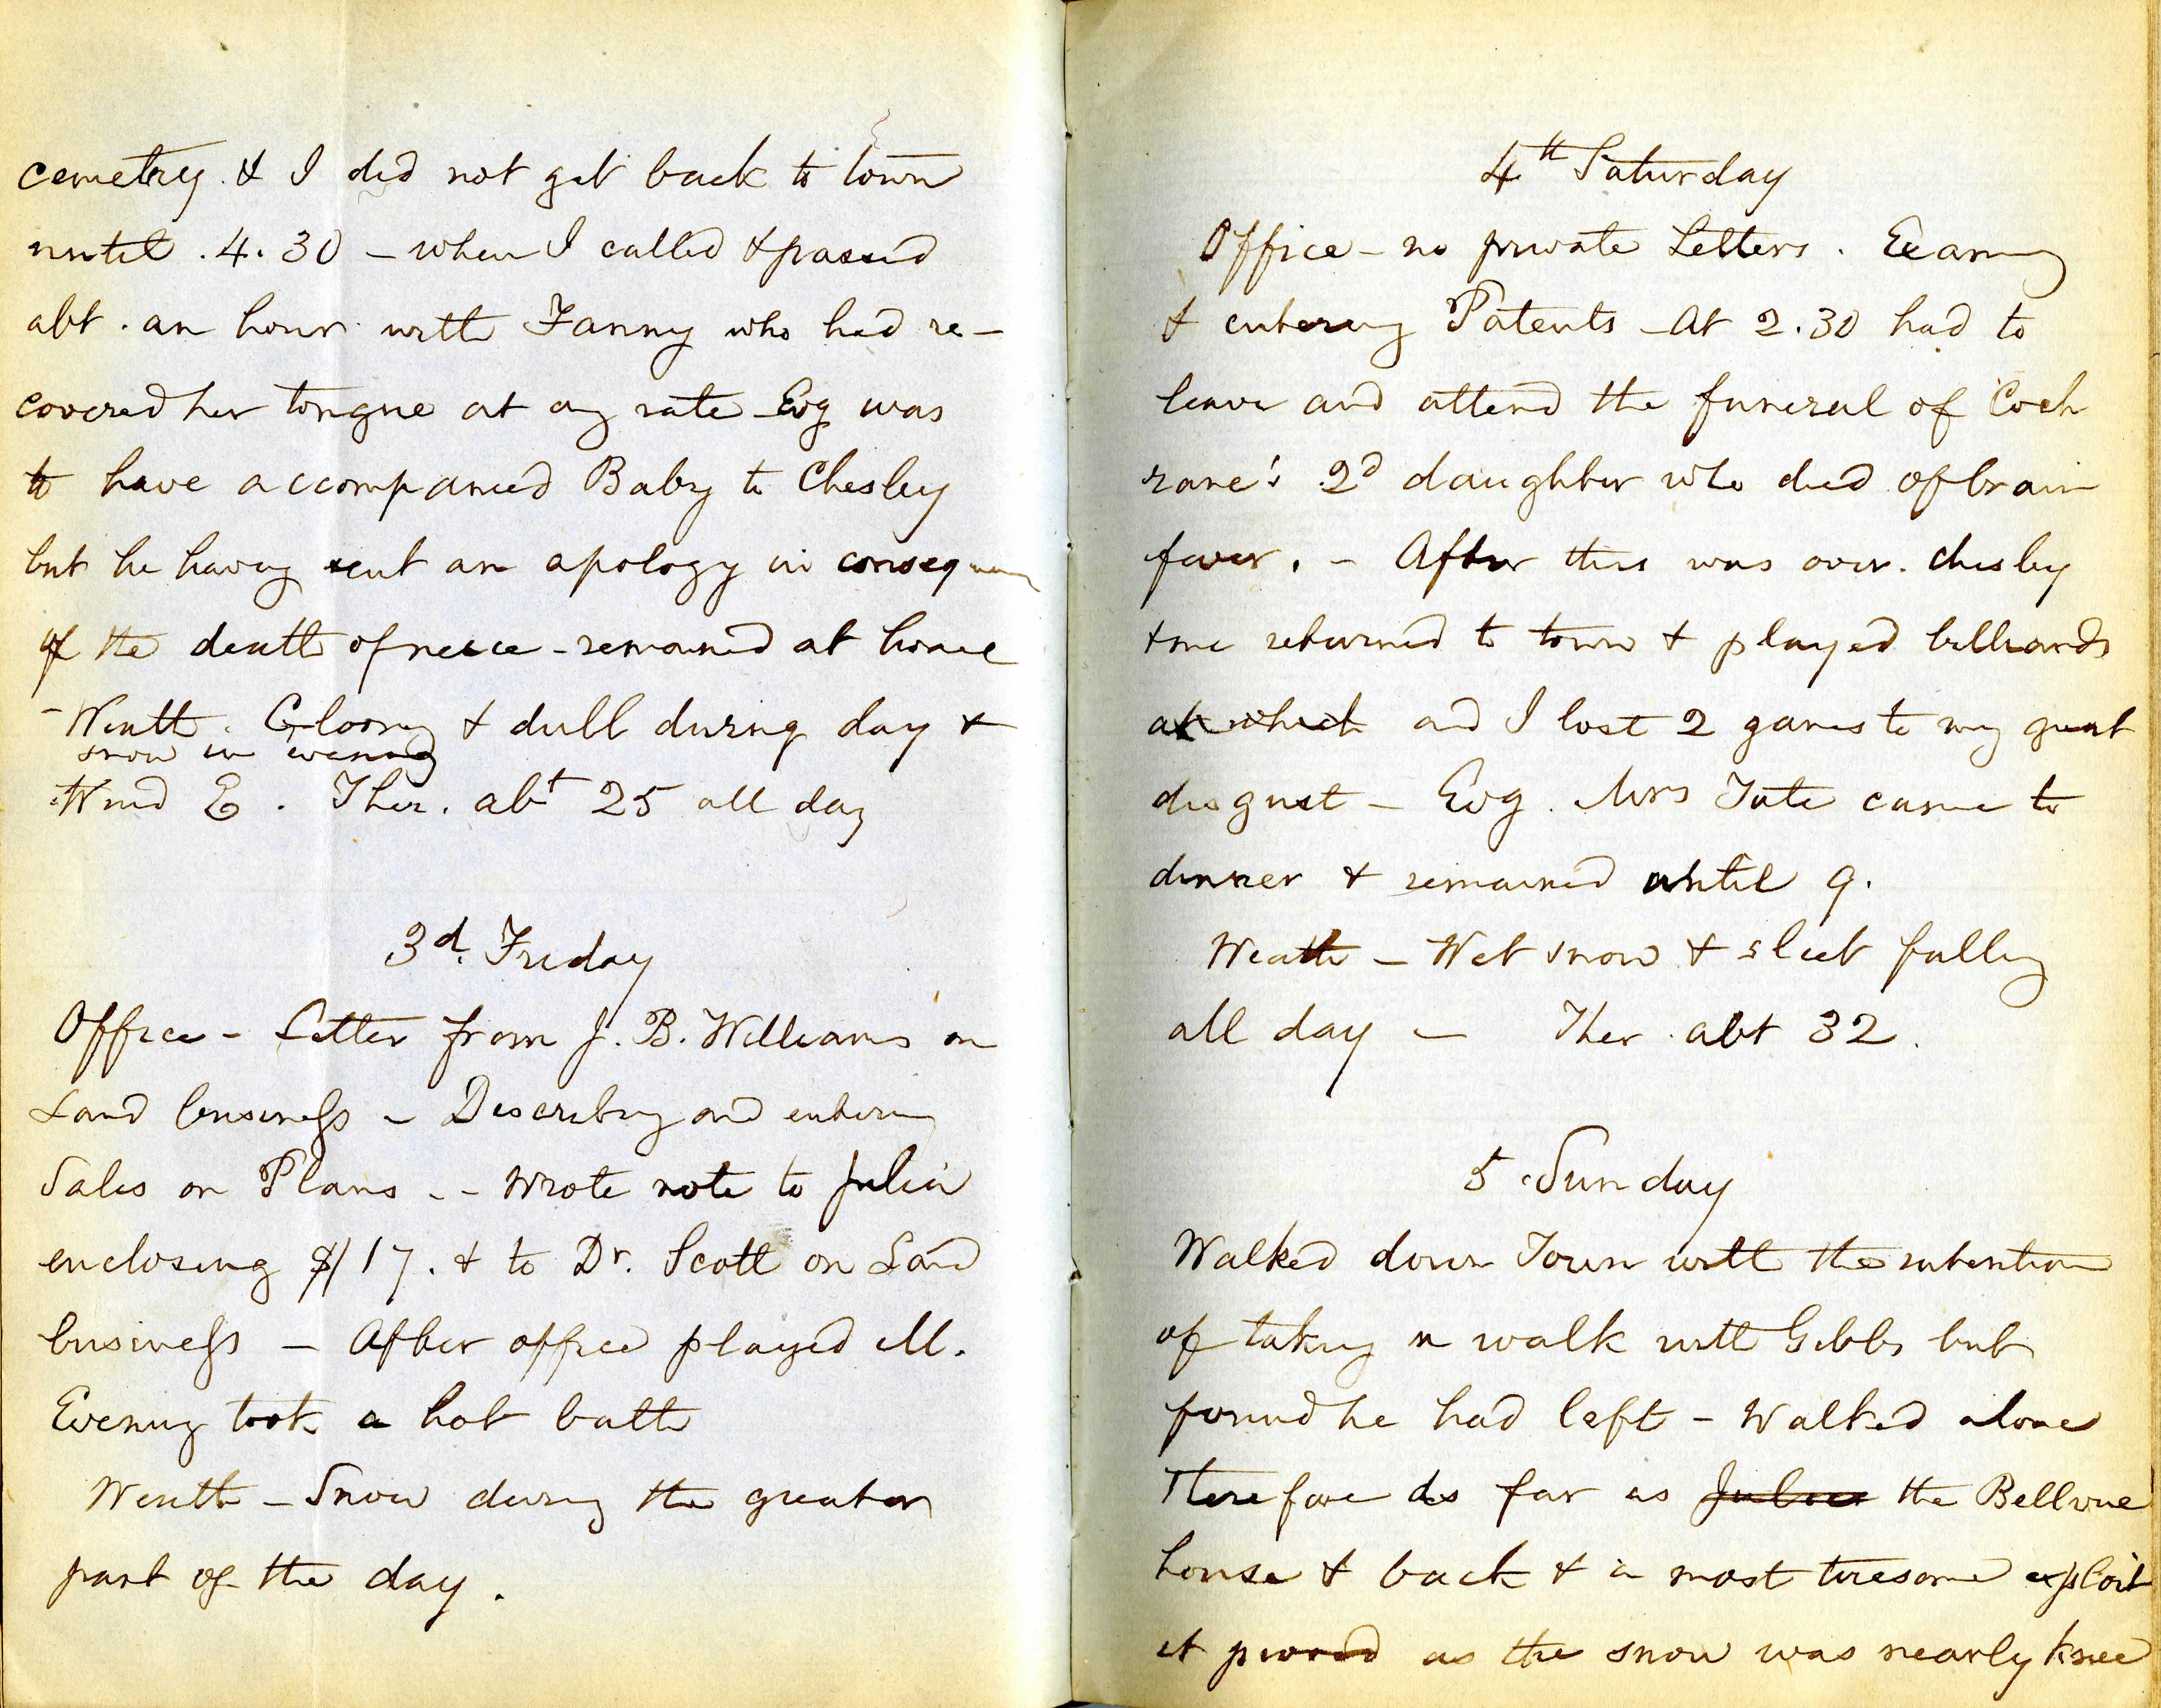 cemetrey. & I did not get back to town
until .4.30 – when I called & passed
abt. an hour with Fanny who had re-
covered her tongue at any rate – Evg was
to have accompanied Baby to Chesley
but he having sent an apology in consequence
of the death of neice – remained at home
– Weath. Gloomy & dull during day &
snow in evening
Wind E. Ther. abt 25 all day
3d. Friday
Office – Letter from J. B. Williams on
Land business – Describing and entering
Sales on Plans – – Wrote note to Julia
enclosing $117. & to Dr. Scott on Land
business – After office played M.
Evening took a hot bath
Weath – Snow during the greater
part of the day.
4th Saturday
Office – no private Letters.
& entering Patents – At 2.30 had to
leave and attend the funeral of Coch
rane's 2d daughter who died of brain
fever. – After this was over. Chesley
& me returned to town & played billiards
at which and I lost 2 games to my great
disgust – Evg. Mrs Tate came to
dinner & remained until 9.
Weath – Wet snow & sleet falling
all day – Ther. abt 32.
5 Sunday
Walked down Town with the intention
of taking a walk with Gibbs but
found he had left – Walked alone
Therefore as far as Julias the Bellvue
house & back & a most tiresome exploit
it proved as the snow was nearly knee